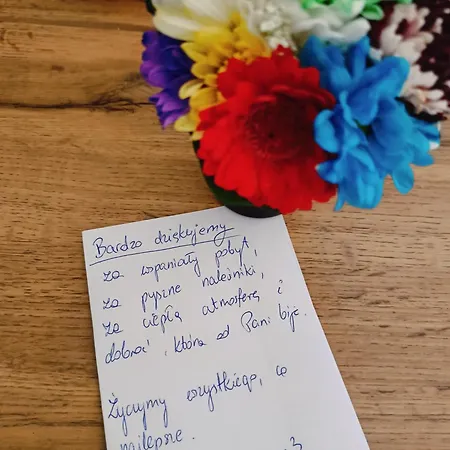 Bardzo dziękujemy
za wspaniały pobyt,
za pyszne naleśniki,
za ciepłą atmosferę i
dobroć, która od Pani bije.
Życzymy wszystkiego, co
najlepsze.